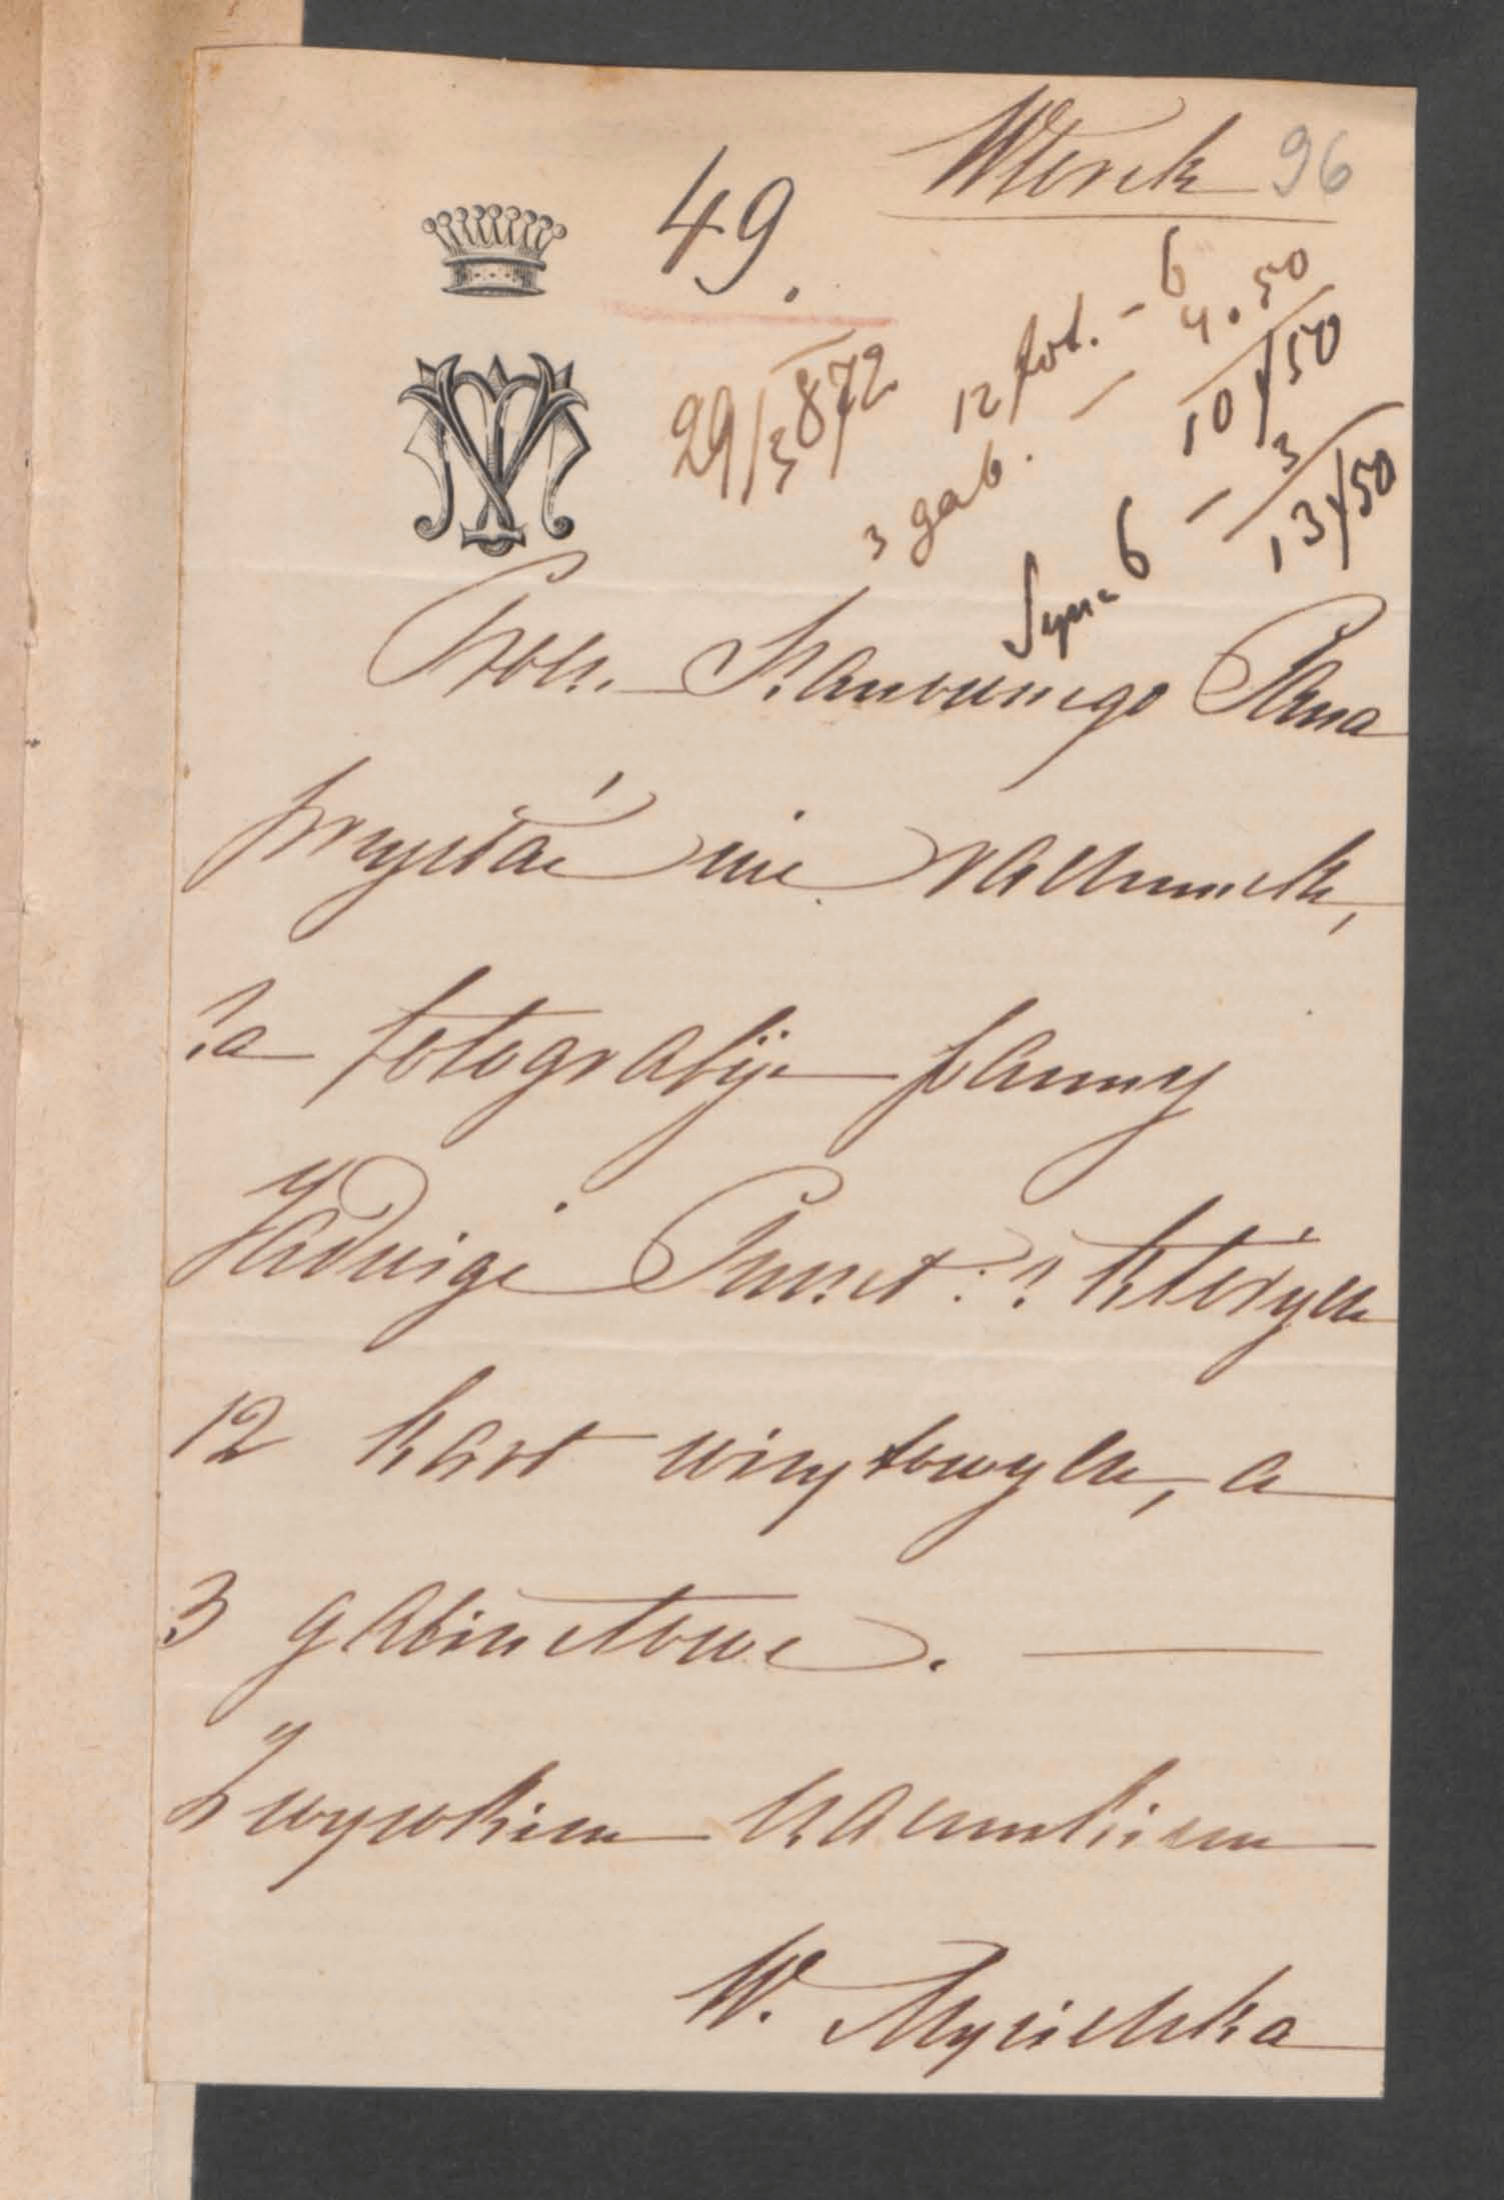 Wtorek 96
49.
29/3 872
12 fot. - 6
3 gab. - 4.50
10/50
Syna 6 - 3
13/50
Proszę Szanownego Pana
przysłać mi rachunek,
za fotografije panny
Jadwigi z których
12 kart wizytowych, a
3 gabinetowe. —
Z wysokim szacunkiem
W. Mycielska